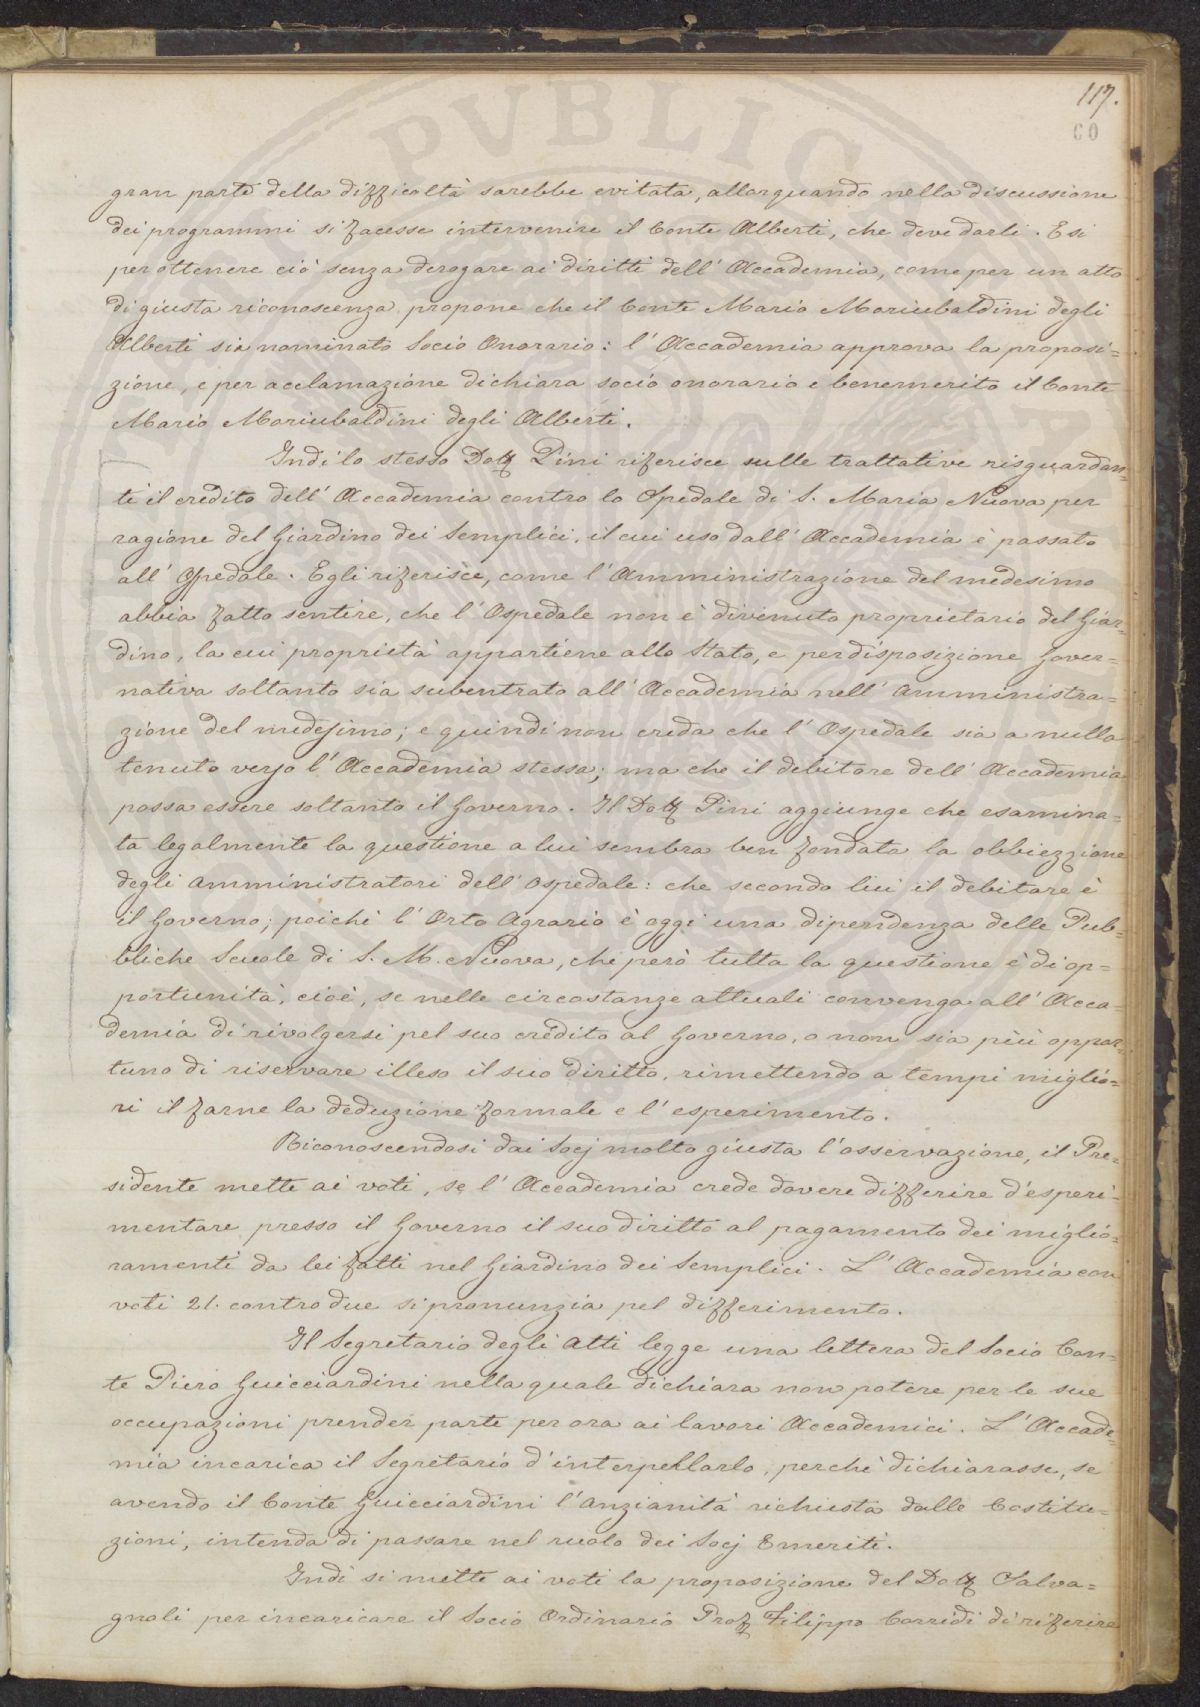 117.
60
PVBLIC
gran parte della difficoltà sarebbe evitata, allorquando nella discussione
dei programmi si facesse intervenire il Conte Alberti, che deve darli. E si
per ottenere ciò senza derogare ai diritti dell'Accademia, come per un atto
di giusta riconoscenza propone che il Conte Mario Moriubaldini degli
Alberti sia nominato Socio Onorario: l'Accademia approva la proposi=
zione, e per acclamazione dichiara socio onorario e benemerito il Conte
Mario Moriubaldini degli Alberti.
Indi lo stesso Dott Pini riferisce sulle trattative risguardan=
ti il credito dell'Accademia contro lo Spedale di S. Maria Nuova per
ragione del Giardino dei Semplici, il cui uso dall'Accademia è passato
all'Ospedale. Egli riferisce, come l'Amministrazione del medesimo
abbia fatto sentire, che l'Ospedale non è divenuto proprietario del Giar=
dino, la cui proprietà appartiene allo Stato, e per disposizione Gover=
nativa soltanto sia subentrato all'Accademia nell'amministra=
zione del medesimo; e quindi non creda che l'Ospedale sia a nulla
tenuto verso l'Accademia stessa; ma che il debitore dell'Accademia
possa essere soltanto il Governo. Il Dott Pini aggiunge che esamina=
ta legalmente la questione a lui sembra ben fondata la obbiezzione
degli amministratori dell'ospedale: che secondo lui il debitore è
il Governo; poichè l'Orto Agrario è oggi una dipendenza delle Pub=
bliche Scuole di S. M. Nuova, che però tutta la questione è di op=
portunità, cioè, se nelle circostanze attuali convenga all'Acca=
demia di rivolgersi pel suo crédito al Governo, o non sia più oppor=
tuno di riservare illeso il suo diritto, rimettendo a tempi miglio=
ri il farne la deduzione formale e l'esperimento.
Riconoscendosi dai Socj molto giusta l'osservazione, il Pre=
sidente mette ai voti, se l'Accademia crede dovere differire d'esperi=
mentare presso il Governo il suo diritto al pagamento dei miglio=
ramenti da lei fatti nel Giardino dei Semplici. L'Accademia con
voti 21. contro due si pronunzia pel differimento.
Il Segretario degli Atti legge una lettera del Socio Con=
te Piero Guicciardini nella quale dichiara non potere per le sue
occupazioni prender parte per ora ai lavori Accademici. L'Accade=
mia incarica il Segretario d'interpellarlo, perchè dichiarasse, se
avendo il Conte Guicciardini l'anzianità richiesta dalle Costitu=
zioni, intenda di passare nel ruolo dei Socj Emeriti.
Indi si mette ai voti la proposizione del Dott Salva=
gnoli per incaricare il Socio Ordinario Prof Filippo Corridi di riferire